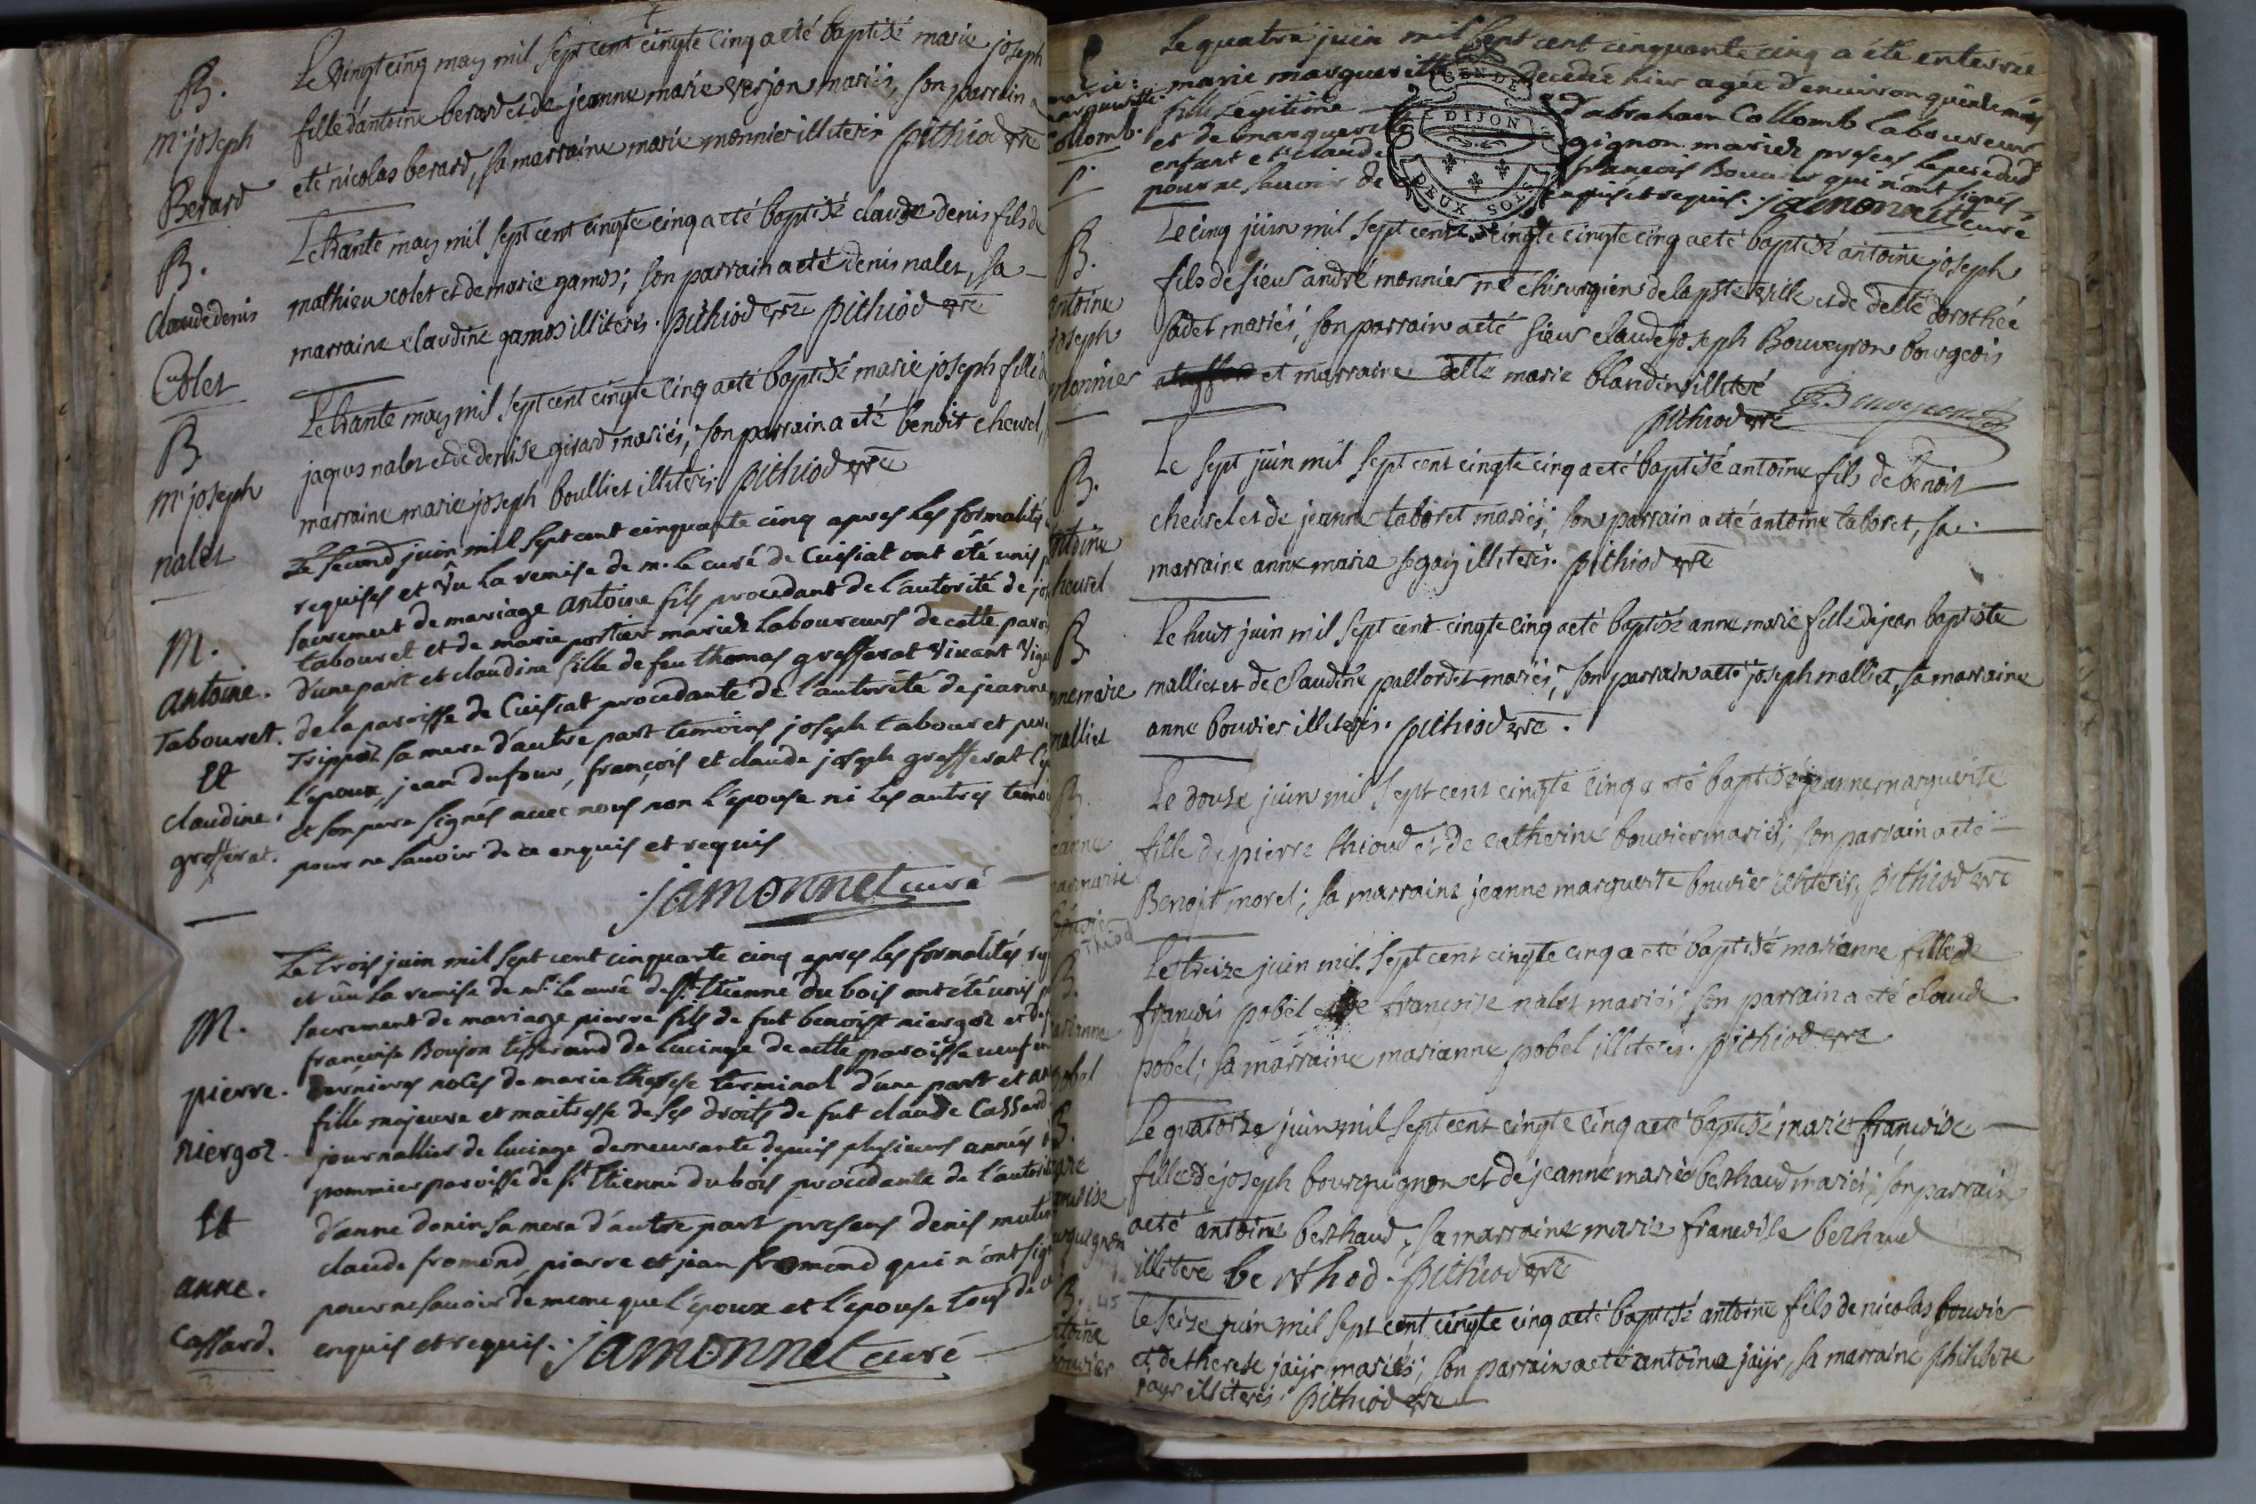 B.
m. joseph
Berard
Le vingt cinq may mil sept cent cingte cinq a eté baptisé marie joseph
fille d'antoine berard et de jeanne marie verjon mariés, son parrain a
eté nicolas berard, sa marraine marie monnier illiterés pithiod vre
B.
Claude denis
Colet
Le trante may mil sept cent cingte cinq a eté baptisé claude denis fils de
mathieu colet et de marie gamos; son parrain a eté denis nalet, sa
marraine claudine gamos illiterés. pithiod vre pithiod vre
B
m joseph
nalet
Le trante may mil sept cent cingte cinq a eté baptisé marie joseph fille d
jaques nalet et de denise girard mariés, son parrain a eté benoit cheurel,
marraine marie joseph boulliet illiterés pithiod vre
M.
antoine.
Tabouret.
Et
claudine.
grefferat.
Le second juin mil sept cent cinquante cinq apres les formalités
requises et vû la remise de mr. le curé de Cuisiat ont été unis p
sacrement de mariage antoine fils procedant de l'autorité de jos
tabouret et de marie portier mariez laboureurs de cette paro
d'une part et claudine fille de feu thomas grefferat vivant vign
de la paroisse de Cuisiat procedante de l'autorité de jeanne
Trippoz sa mere d'autre part temoins joseph tabouret pere
l'epoux, jean dufour, françois et claude joseph grefferat l'ep
et son pere signés avec nous non l'epouse ni les autres temoi
pour ne savoir de ce enquis et requis
jamonnet curé
M.
pierre.
niergoz.
Et
anne.
Cassard.
Le trois juin mil sept cent cinquante cinq apres les formalités req
et vû la remise de mr. le curé de st. Etienne du bois ont été unis p
sacrement de mariage pierre fils de fut benoist niergoz et de
françoise Boujon tisserand de lucinge de cette paroisse veuf en
dernieres noces de marie therese terminal d'une part et an
fille majeure et maitresse de ses droits de fut claude Cassard
journallier de lucinge demeurante depuis plusieurs années
pommier paroisse de st. Etienne du bois procedante de l'autorité
d'anne donin sa mere d'autre part presens denis mutin
claude fromond, pierre et jean fromond qui n'ont sign
pour ne savoir de meme que l'epoux et l'epouse tous de ce
enquis et requis. jamonnet curé
marguerite
ollomb.
Le quatre juin mil sept cent cinquante cinq a été enterrée
marie marguerite decedée hier agée d'environ quinze mois
fille legitime d'abraham Collomb laboureur
et de marguerite gignon mariez presens le pere dud
enfant et claude françois Bouvier qui n'ont signés
pour ne savoir de enquis et requis. jamonnet curé
DIJON
DEUX SOLS
B.
antoine
joseph
monnier
Le cinq juin mil sept cent cingte cingte cinq a eté baptisé antoine joseph
fils de sieur andré monnier me chirurgien de la pste ville et de delle dorothée
sadet mariés, son parrain a eté sieur claude joseph Bouveyron bourgeois
et marraine delle marie blandin illiteré
pithiod vre Bouveyron
B.
ntoine
heurel
Le sept juin mil sept cent cingte cinq a eté baptisé antoine fils de benoit
cheurel et de jeanne taboret mariés, son parrain a eté antoine taboret, sa
marraine anne marie segaij illiterés. pithiod vre
B
nnemarie
malliet
Le huit juin mil sept cent cingte cinq a eté baptisé anne marie fille de jean baptiste
malliet et de claudine pallordet mariés, son parrain a eté joseph malliet, sa marraine
anne bouvier illiterés. pithiod vre.
B.
eanne
Thiod
Le douze juin mil sept cent cingte cinq a eté baptisé jeanne marguerite
fille de pierre thioud et de catherine bouvier mariés, son parrain a eté
Benoit morel; sa marraine jeanne marguerite bouvier illiterés, pithiod vre
B.
arianne
obel
Le treize juin mil sept cent cingte cinq a eté baptisé marianne fille de
françois pobel et de françoise nalet mariés; son parrain a eté claude
pobel; sa marraine marianne pobel illiterés. pithiod vre
B.
arie
ançoise
ourguignon
Le quatorze juin mil sept cent cingte cinq a eté baptisé marie françoise
fille de joseph bourguignon et de jeanne marie berthaud mariés; son parrain
a eté antoine berthaud, sa marraine marie françoise berthaud
illitere berthod. pithiod vre
B. 45
ntoine
ouvier
Le seize juin mil sept cent cingte cinq a eté baptisé antoine fils de nicolas bouvier
et de therese jaijr mariés; son parrain a eté antoine jaijr, sa marraine philiberte
jayr illiterés. pithiod vre